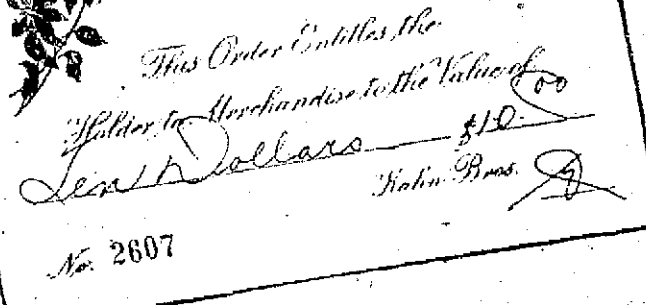 This Order Entitles the
Holder to Merchandise to the Value of
Ten Dollars $10.00
Kahn Bros.
No. 2607